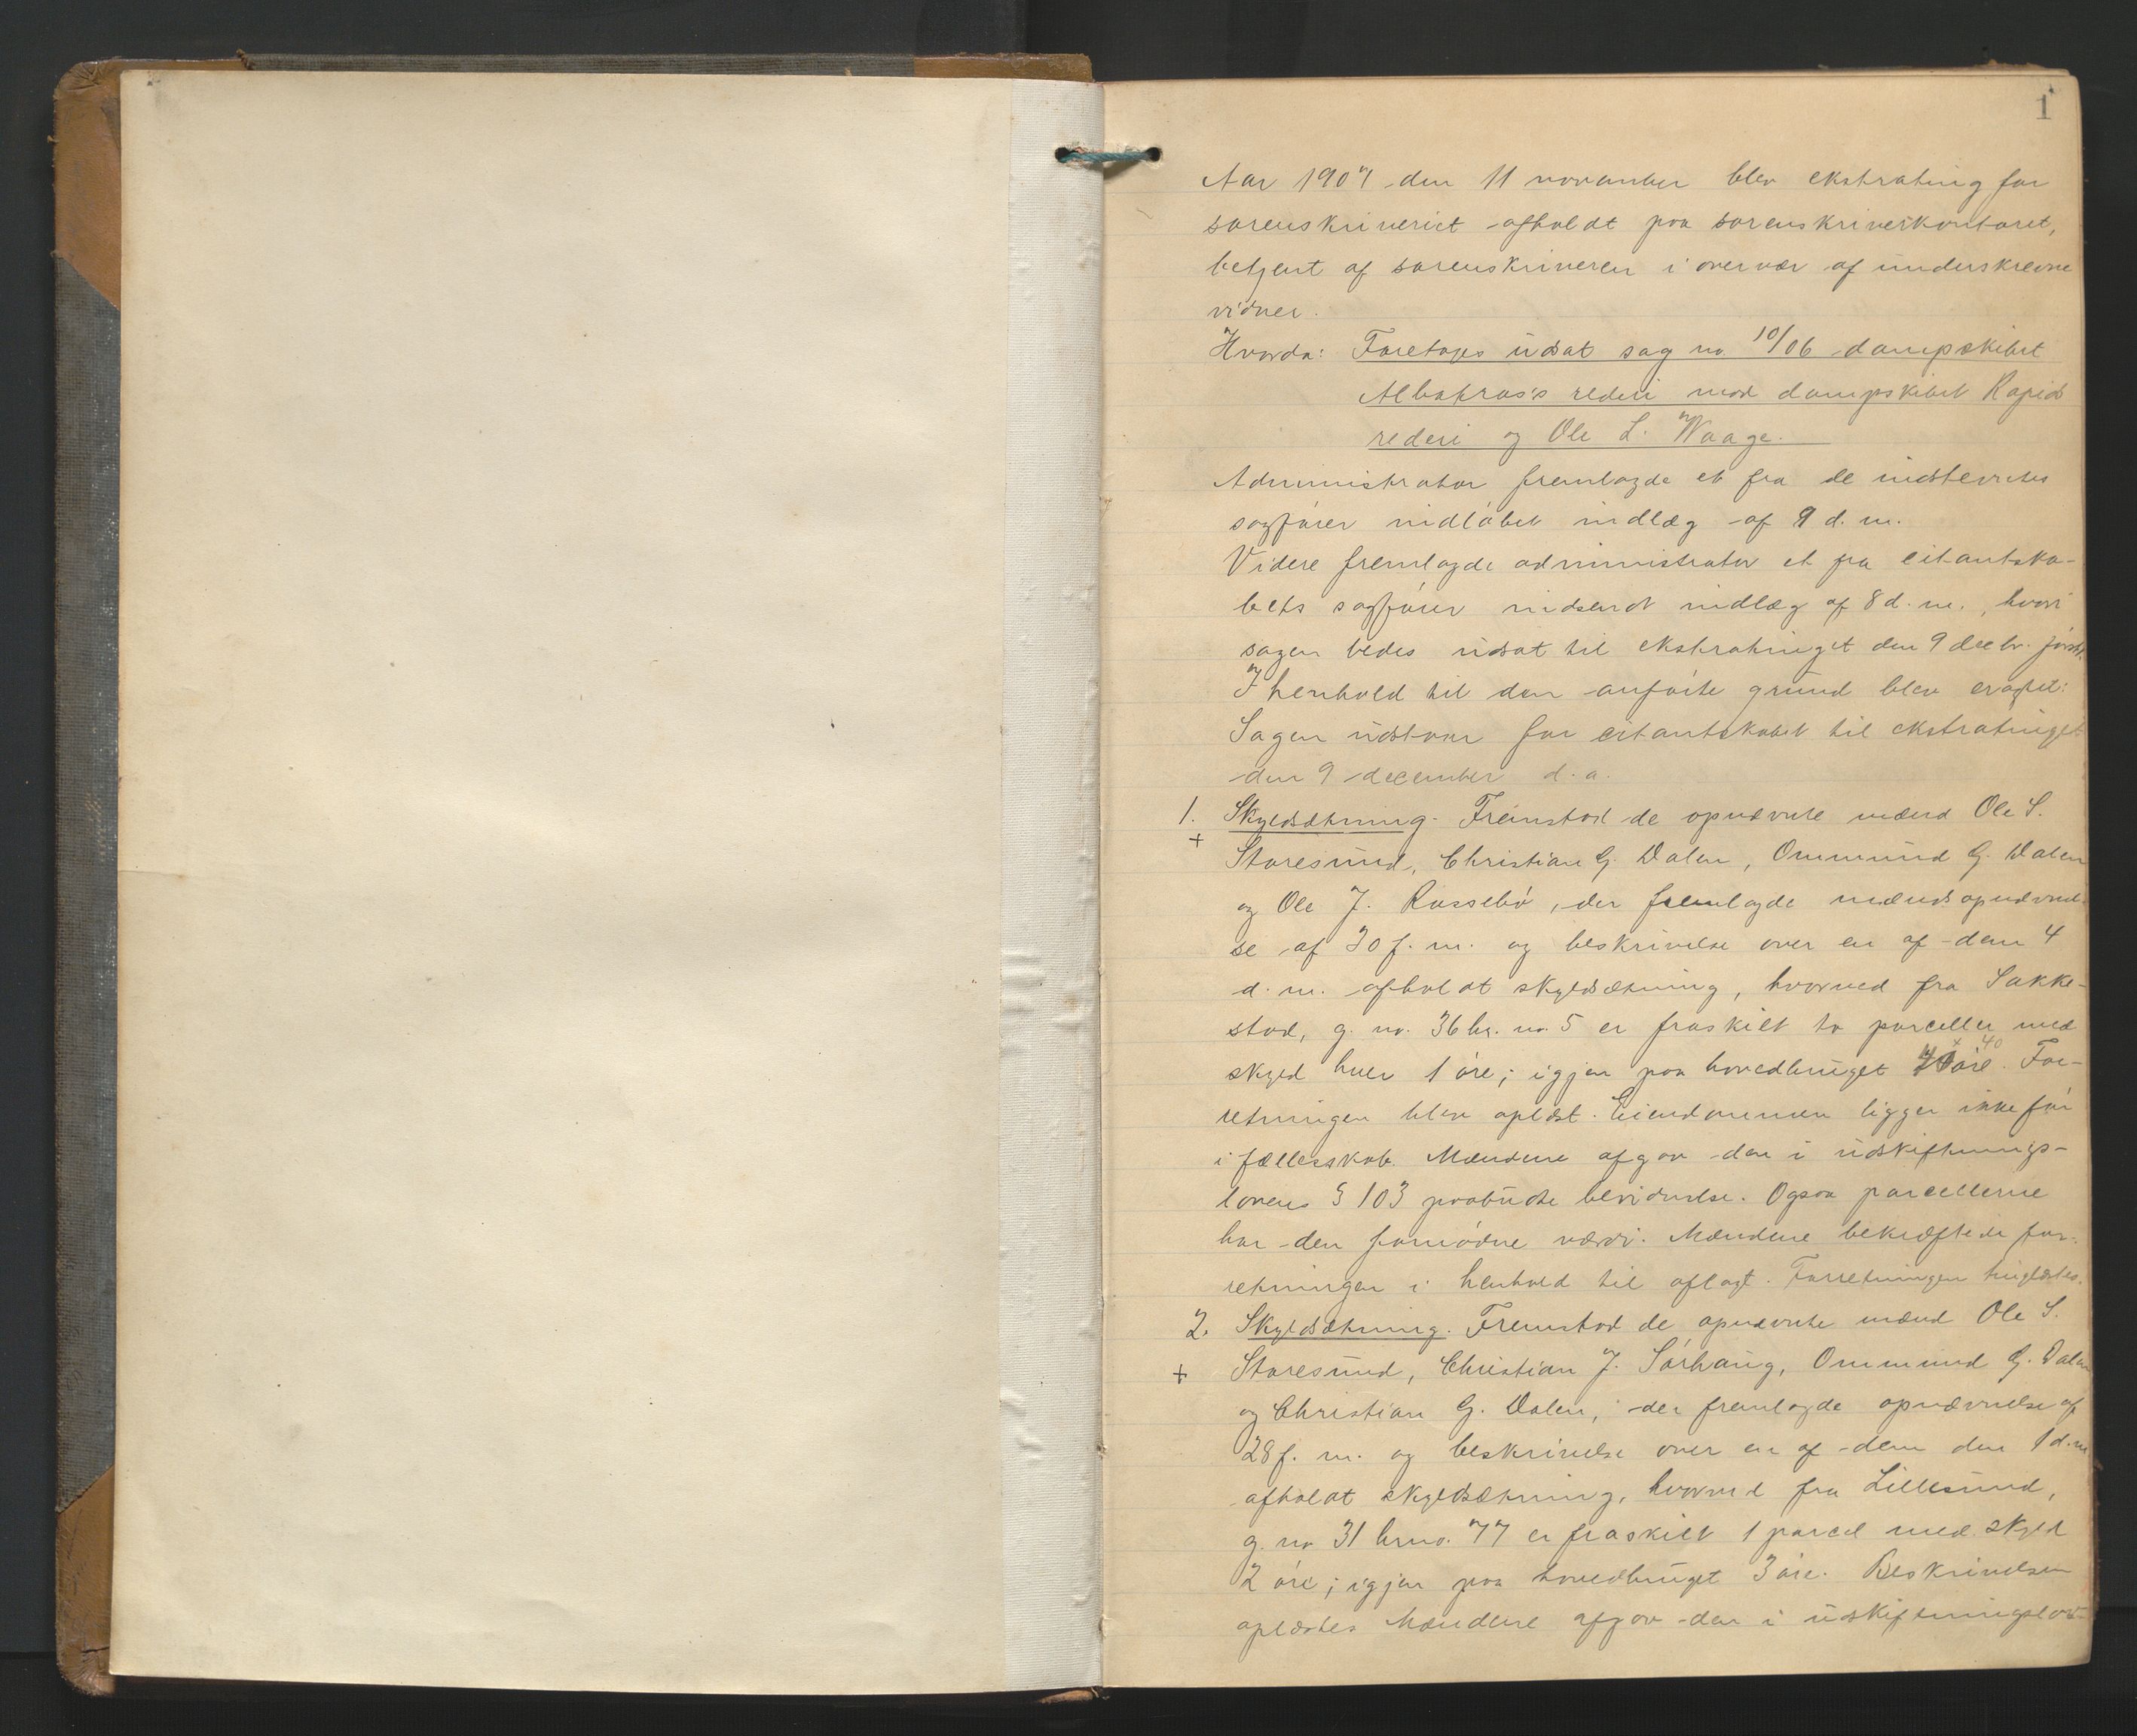 1
Aar 1907 den 11 november blev ekstrating for
sorenskriveriet afholdt paa sorenskriverkontoret,
betjent af sorenskriveren i overvær af underskrevne
vidner.
Hvorda: Foretoges udsat sag no. 10/06 dampskibet
Albatros's rederi mod dampskibet Rapids
rederi og Ole L. Waage.
Administrator fremlagde et fra de indstevntes
sagfører indløbet indlæg af 9 d. m.
Videre fremlagde administrator et fra citantska-
bets sagfører indsendt indlæg af 8 d. m., hvori
sagen bedes udsat til ekstratinget den 9 decbr. førstk.
I henhold til den anførte grund blev eragtet:
Sagen udstaar for citantskabet til ekstratinget
den 9 december d. a.
1. Skyldsætning. Fremstod de opnævnte mænd Ole S.
+ Storesund, Christian G. Dalen, Ommund G. Dalen
og Ole J. Rossebø, der fremlagde mændsopnævnel-
se af 30 f. m. og beskrivelse over en af dem 4
d. m. afholdt skyldsætning, hvorved fra Sakke-
stad, g. no. 36 br. no. 5 er fraskilt to parceller med
skyld hver 1 øre; igjen paa hovedbruget 40 øre. For-
retningen blev oplæst. Eiendommen ligger ikke før
i fællesskab. Mændene afgav den i udskiftnings-
lovens § 103 paabudte bevidnelse. Ogsaa parcellerne
har den fornødne værdi. Mændene bekræftede for-
retningen i henhold til aflagt. Forretningen tinglæstes.
2. Skyldsætning. Fremstod de opnævnte mænd Ole S.
+ Storesund, Christian J. Sørhaug, Ommund G. Dalen
og Christian G. Dalen, der fremlagde opnævnelse af
28 f. m. og beskrivelse over en af dem den 1 d. m.
afholdt skyldsætning, hvorved fra Lillesund,
g. no. 31 brno. 77 er fraskilt 1 parcel med skyld
2 øre; igjen paa hovedbruget 3 øre. Beskrivelsen
oplæstes. Mændene afgav den i udskiftningslov-